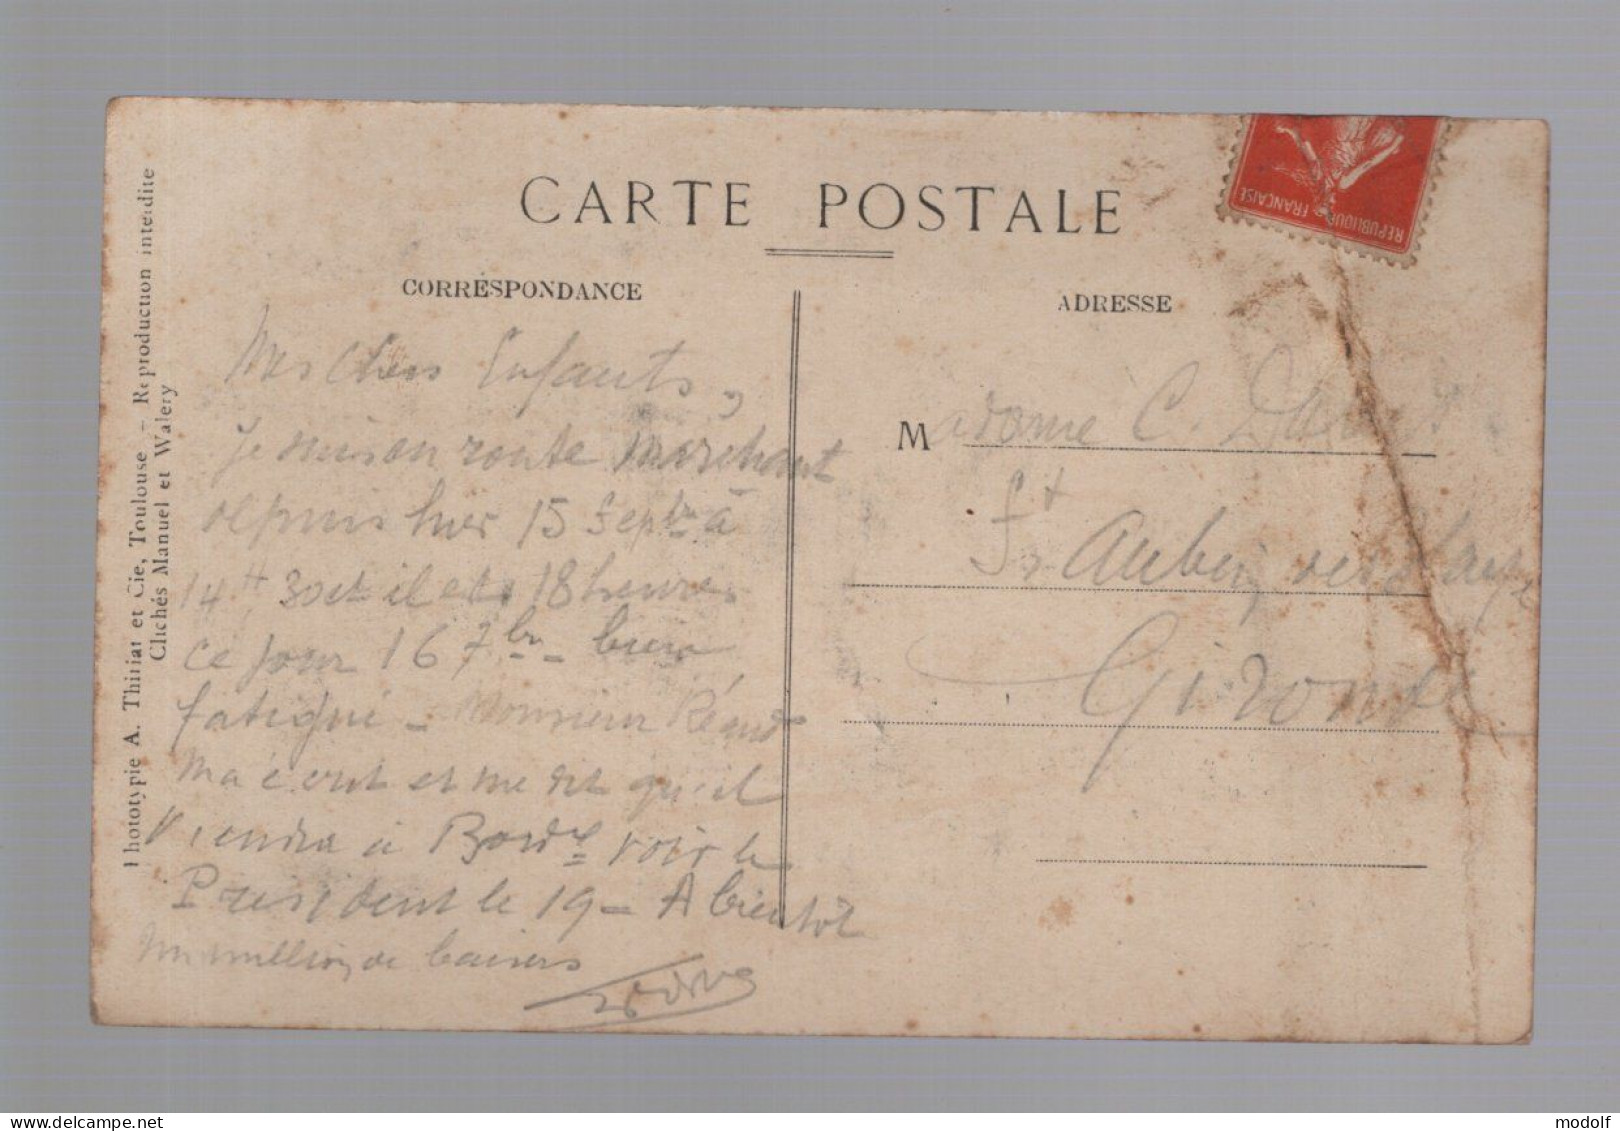 CARTE POSTALE
CORRESPONDANCE
Mes Chers Enfants,
Je suis en route marchant
depuis hier 15 Septre à
14 H 30 et il est 18 heures
ce jour 16 7bre bien
fatigué - Monsieur
m'a écrit et me dit qu'il
viendra à Bordx voir le
President le 19 - A bientôt
un million de baisers
ADRESSE
Madame C.
St Aubin de Blaye
Gironde
REPUBLIQUE FRANÇAISE
Phototypie A. Thiriat et Cie, Toulouse - Reproduction interdite
Clichés Manuel et Walery
modolf